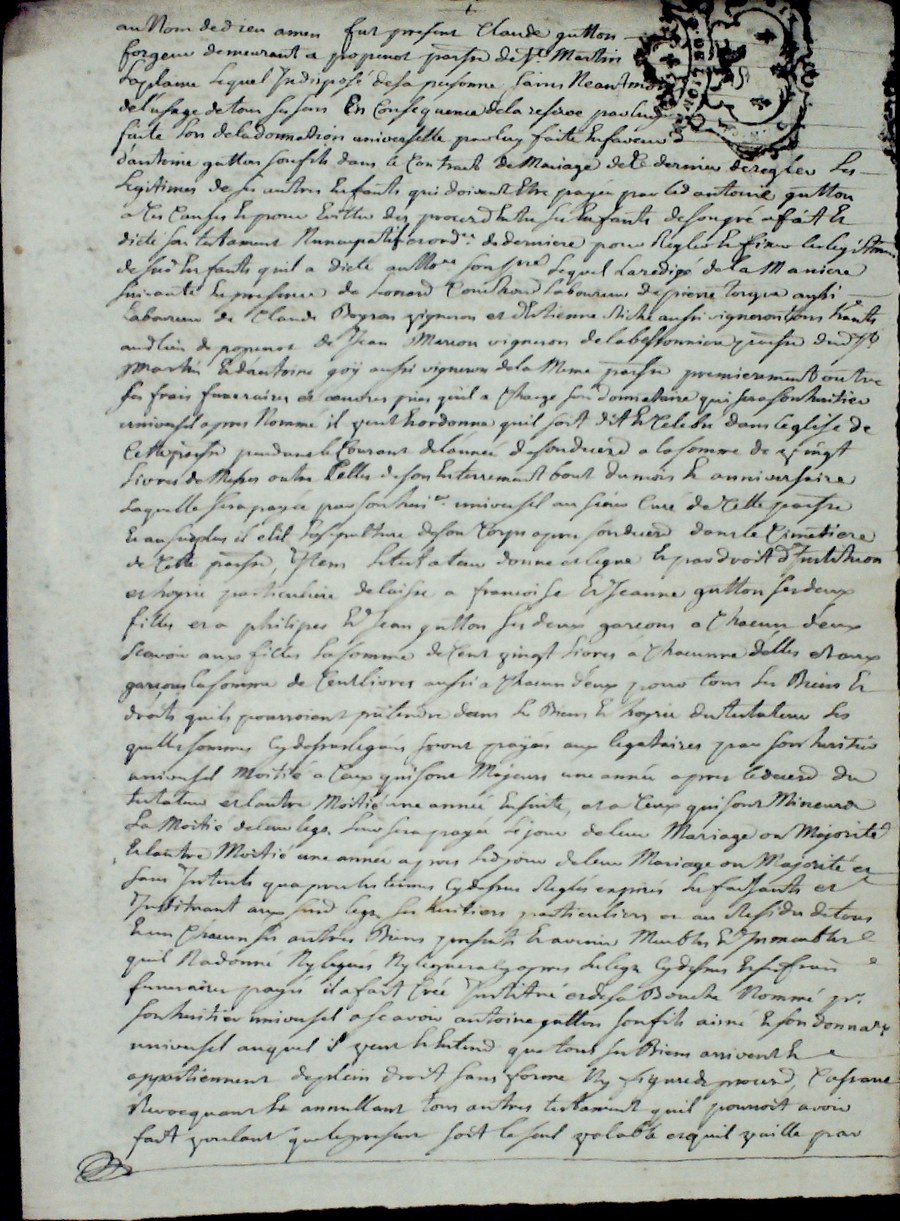 au Nom de dieu amen fut present Claude gutton
forgeur demeurant a popenot parsse de St. Martin
Laplaine Lequel Indisposé de sa personne sains Neantmoins
de l'usage de tous ses sens En Consequence de la reserve par luy
faite lors de la donnation universelle par luy faite En faveur
d'antoine gutton son fils dans le Contrait de Mariage de Ce dernier de regler Les
Legitimes de ses autres Enfants qui doivent Etre payes par led antoine gutton
a Ces Causes Et pour Eviter des proces Entre ses Enfants de son gré a fait Et
dicté son testament Nuncupatif et ord.re de derniere pour Regler Et fixer les legitimes
de sesd Enfants qu'il a dicté au No.re soussigné Lequel La redigé de la Maniere
suivante En presence de Leonard Laboureur de pierre aussi
Laboureur de Claude vigneron et d'Estienne aussi vigneron tous
aud lieu de popenot de Jean vigneron de la parsse dud St
Martin Et d'antoine goÿ aussi vigneron de la Meme parsse premierement outre
ses frais funeraires et oeuvres pies qu'il a Charge son donnataire qui sera son heritier
universel apres Nommé il veut Et ordonne quil soit dit Et Celebré dans L'eglise de
Cette parsse pendant le Courant de l'année de son deces a la somme de vingt
Livres de Messes outre Celles de son Enterrement bout du mois Et anniversaire
Laquelle sera payée par son heri.er universel au sieur Curé de Cette parsse
Et au surplus il elit la sepulture de son Corps apres son deces dans le Cimetiere
de Cette parsse, Item Le testateur donne et legue Et par droit d'Institution
et hoyrie particuliere delaisse a francoise Et Jeanne gutton ses deux
filles et a philipes Et Jean gutton ses deux garcons a Chacun deux
scavoir aux filles la somme de Cent vingt Livres a Chacunne d'elles et aux
garcons la somme de Cent livres aussi a Chacun d'eux pour tous les Biens Et
droits quils pourroient pretendre dans les Biens Et hoyrie du testateur Les
quelles sommes Cy dessus leguées seront payées aux legataires par son heritier
universel Moitié a Ceux qui sont Majeurs une année apres le deces du
testateur et l'autre Moitié une année Ensuite, et a Ceux qui sont Mineurs
La Moitié de leur legs Leur sera payée le jour de leur Mariage ou Majorité
Et l'autre Moitié une année apres led jour de leur Mariage ou Majorité et
sans Interets que pour les termes Cy dessus Reglés expirés les faisants et
Instituant aux susd legs ses heritiers particuliers et au Residu de tous
Et un Chacun ses autres Biens presents Et avenir Meubles Et Immeubles
quil Na donné Ny legués Ny leguera Cy apres les legs Cy dessus Et frais
funeraires payés il a fait Créé Institué et de sa Bouche Nommé pr.
son heritier universel a scavoir antoine gutton son fils ainé Et son donnataire
universel auquel il veut Et Entend que tous ses Biens arrivent Et
appartiennent de plein droit sans forme Ny figure de proces, Cassant
Revocquant Et annullant tous autres testament qu'il pourroit avoir
fait voulant que le present soit le seul valable et quil vaille par